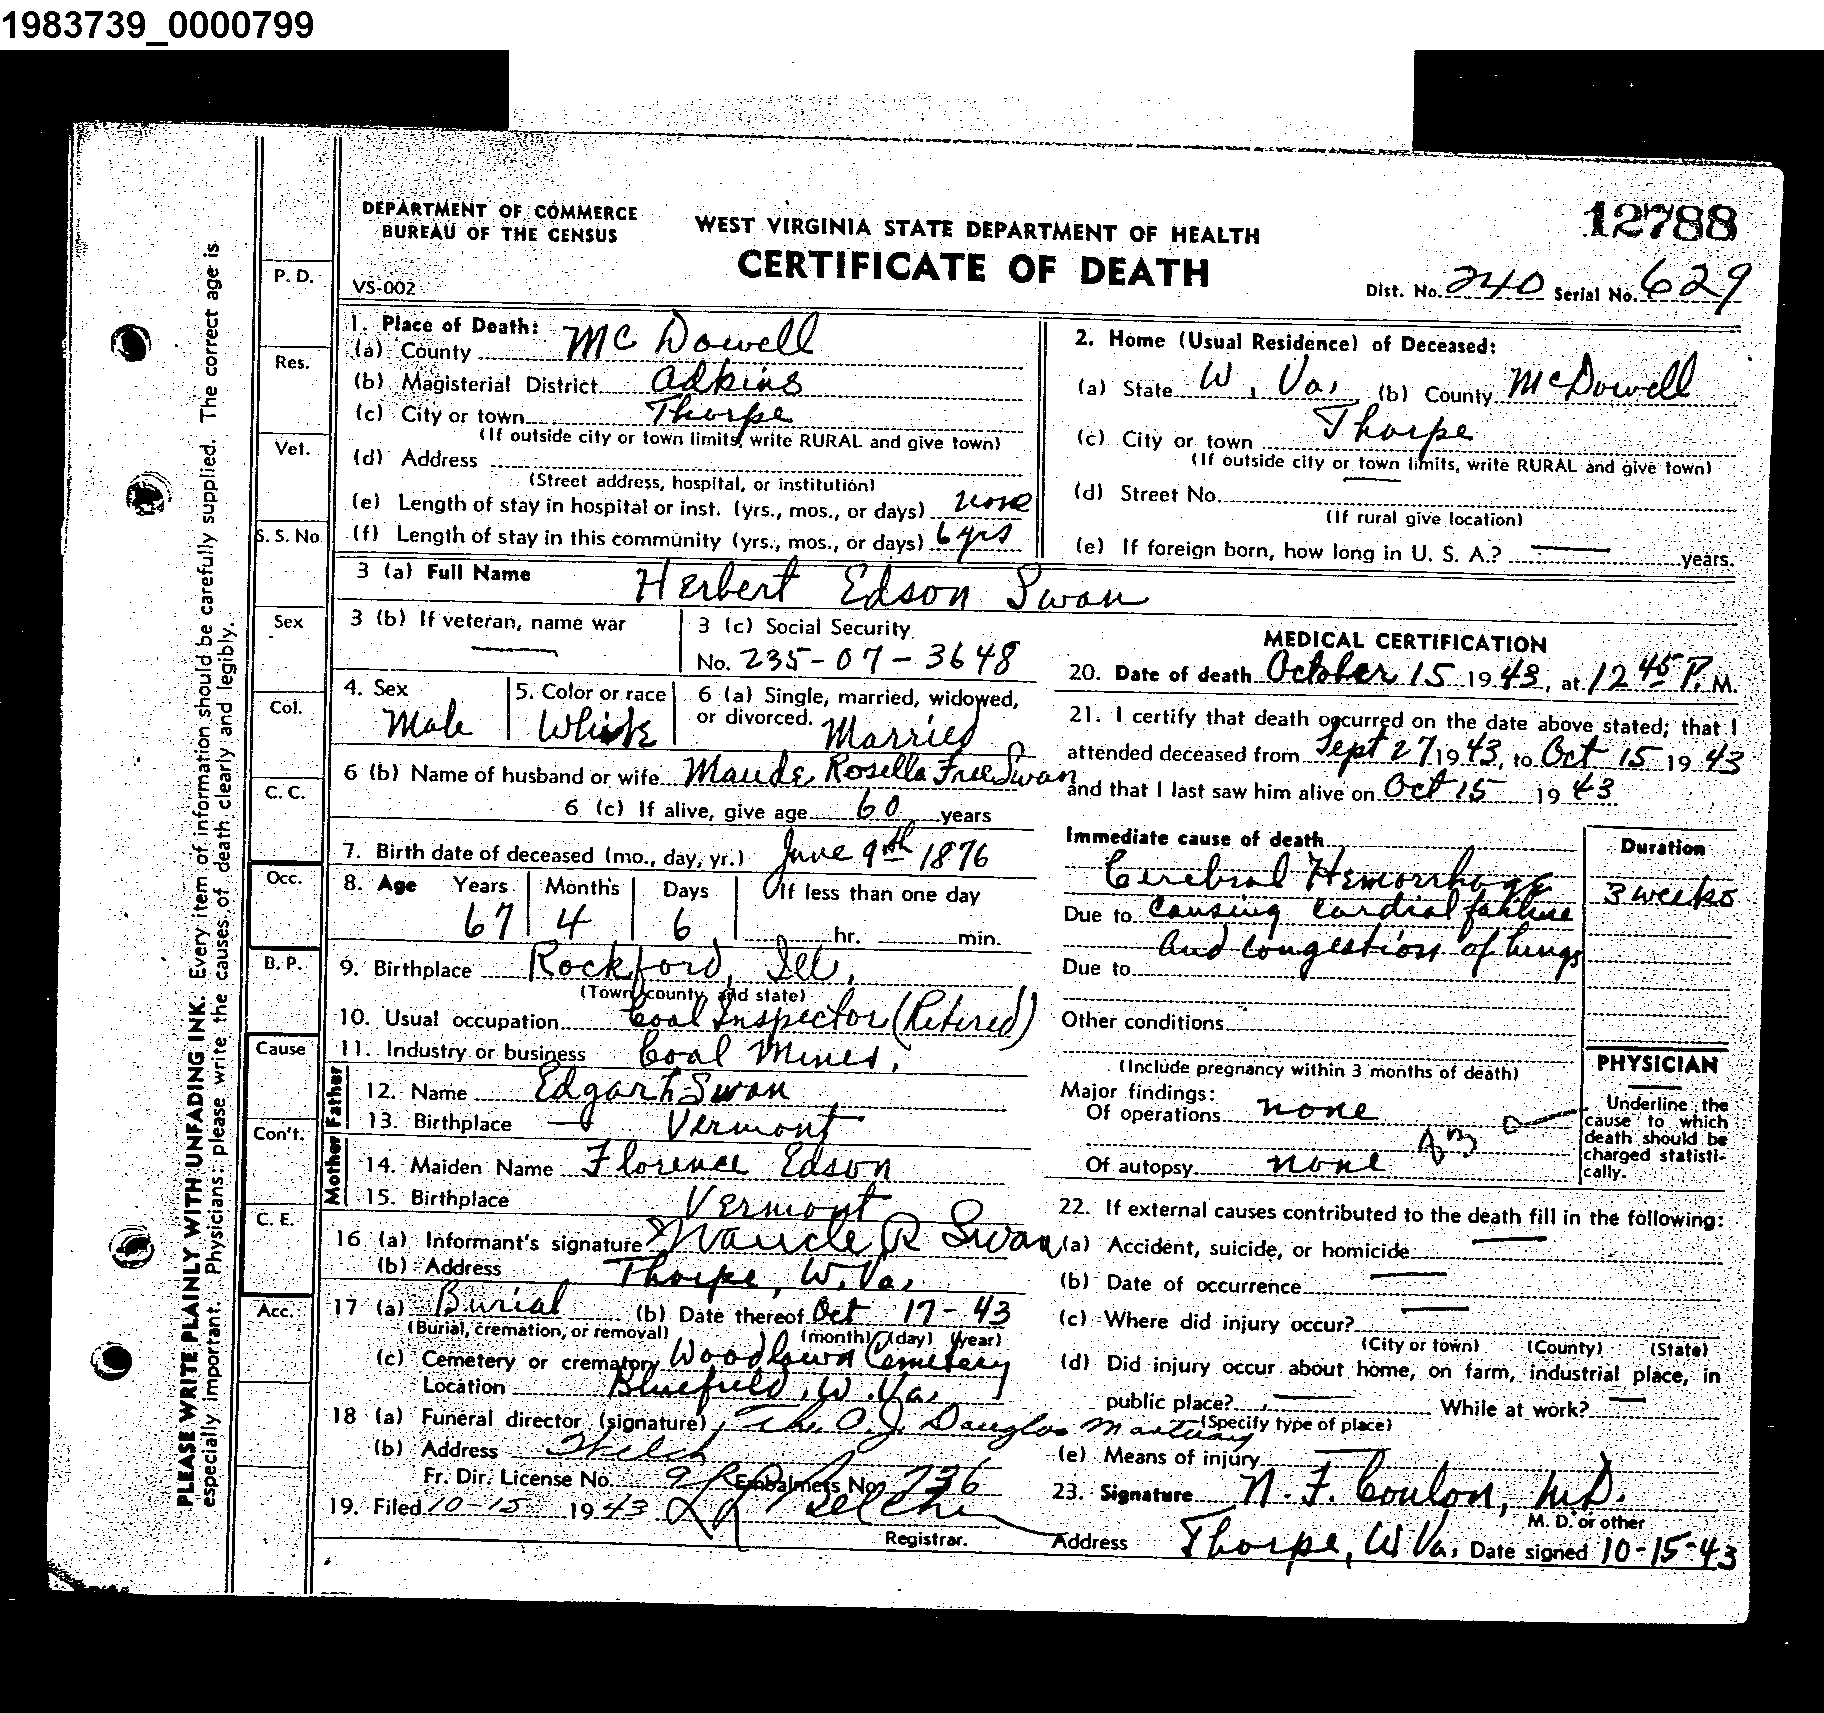 1983739_0000799
DEPARTMENT OF COMMERCE
BUREAU OF THE CENSUS
VS-002
WEST VIRGINIA STATE DEPARTMENT OF HEALTH
CERTIFICATE OF DEATH
12788
Dist. No. 240 Serial No. 629
PLEASE WRITE PLAINLY WITH UNFADING INK. Every item of information should be carefully supplied. The correct age is
especially important. Physicians: please write the causes of death clearly and legibly.
P. D.
Res.
Vet.
S. S. No
Sex
Col.
C. C.
Occ.
B. P.
Cause
Con't.
C. E.
Acc.
1. Place of Death:
(a) County Mc Dowell
(b) Magisterial District Adkins
(c) City or town Thorpe
(If outside city or town limits, write RURAL and give town)
(d) Address
(Street address, hospital, or institution)
(e) Length of stay in hospital or inst. (yrs., mos., or days) none
(f) Length of stay in this community (yrs., mos., or days) 6 yrs
2. Home (Usual Residence) of Deceased:
(a) State W. Va. (b) County McDowell
(c) City or town Thorpe
(If outside city or town limits, write RURAL and give town)
(d) Street No. —
(If rural give location)
(e) If foreign born, how long in U. S. A.? — years.
3 (a) Full Name Herbert Edson Swan
3 (b) If veteran, name war —
3 (c) Social Security
No. 235-07-3648
4. Sex Male
5. Color or race White
6 (a) Single, married, widowed,
or divorced. Married
6 (b) Name of husband or wife Maude Rosella Free Swan
6 (c) If alive, give age 60 years
7. Birth date of deceased (mo., day, yr.) June 9th 1876
8. Age Years Months Days If less than one day
67 4 6 hr. min.
9. Birthplace Rockford, Ill.
(Town, county, and state)
10. Usual occupation Coal Inspector (Retired)
11. Industry or business Coal Mines.
Father
12. Name Edgar Swan
13. Birthplace — Vermont
Mother
14. Maiden Name Florence Edson
15. Birthplace Vermont
16 (a) Informant's signature Maude R Swan
(b) Address Thorpe, W. Va.
17 (a) Burial (b) Date thereof Oct 17-43
(Burial, cremation, or removal) (month) (day) (year)
(c) Cemetery or crematory Woodlawn Cemetery
Location Bluefield, W. Va.
18 (a) Funeral director (signature) The O. J. Douglas Mortuary
(b) Address Welch
Fr. Dir. License No. Embalmers No. 736
19. Filed 10-15 1943
Registrar.
MEDICAL CERTIFICATION
20. Date of death October 15 1943, at 12 45 P. M.
21. I certify that death occurred on the date above stated; that I
attended deceased from Sept 27 1943, to Oct 15 1943
and that I last saw him alive on Oct 15 1943
Immediate cause of death
Duration
Cerebral Hemorrhage 3 weeks
Due to causing cardial failure
and congestion of lungs
Due to
Other conditions
(Include pregnancy within 3 months of death)
Major findings:
Of operations none
Of autopsy none
PHYSICIAN
Underline the
cause to which
death should be
charged statisti-
cally.
22. If external causes contributed to the death fill in the following:
(a) Accident, suicide, or homicide —
(b) Date of occurrence —
(c) Where did injury occur? —
(City or town) (County) (State)
(d) Did injury occur about home, on farm, industrial place, in
public place? — While at work? —
(Specify type of place)
(e) Means of injury —
23. Signature N. F. Coulon, M.D.
M. D. or other
Address Thorpe, W Va. Date signed 10-15-43